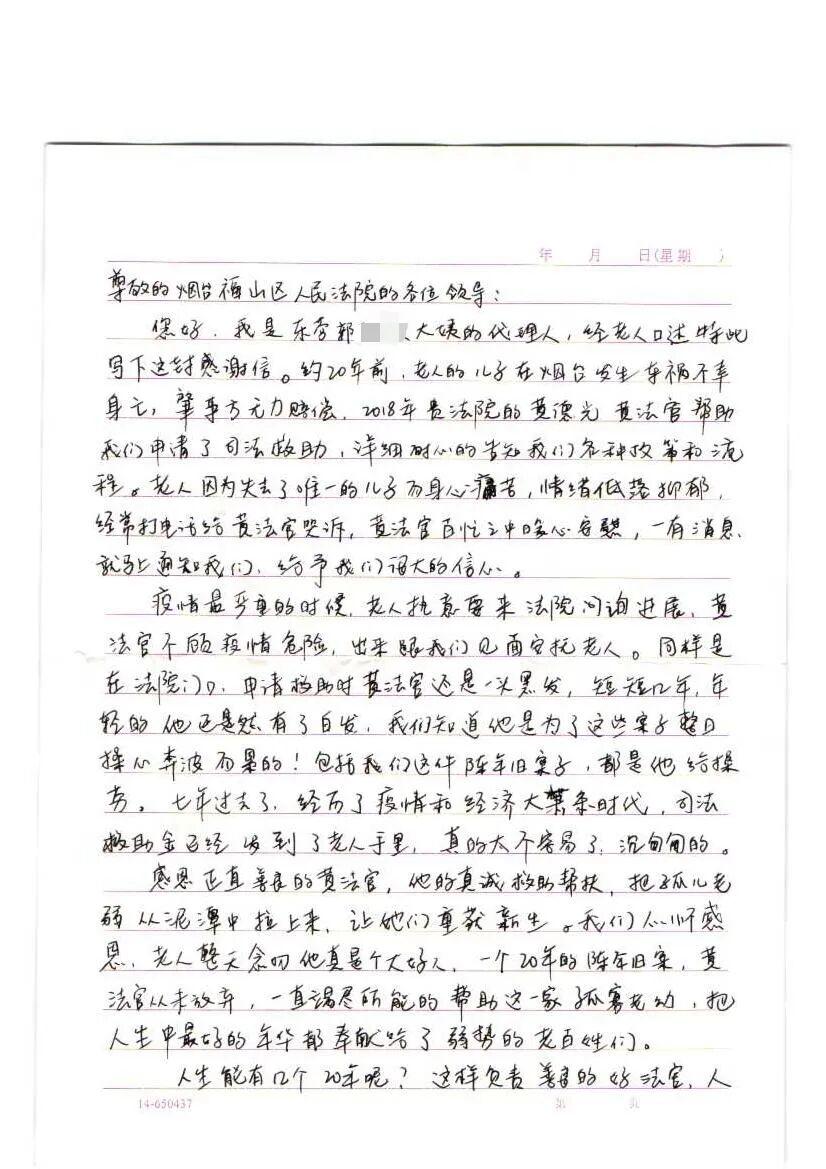 年 月 日(星期 )
尊敬的烟台福山区人民法院的各位领导：
您好，我是东李郭 大姨的代理人，经老人口述特此
写下这封感谢信。约20年前，老人的儿子在烟台发生车祸不幸
身亡，肇事方无力赔偿，2018年贵法院的黄德光黄法官帮助
我们申请了司法救助，详细耐心的告知我们各种政策和流
程。老人因为失去了唯一的儿子而身心痛苦，情绪低落抑郁，
经常打电话给黄法官哭诉，黄法官百忙之中暖心安慰，一有消息
就马上通知我们，给予我们很大的信心。
疫情最严重的时候，老人执意要来法院问询进展，黄
法官不顾疫情危险，出来跟我们见面安抚老人。同样是
在法院门口，申请救助时黄法官还是一头黑发，短短几年，年
轻的他已是然有了白发，我们知道他是为了这些案子整日
操心奔波而累的！包括我们这件陈年旧案子，都是他给操
劳。七年过去了，经历了疫情和经济大萧条时代，司法
救助金已经发到了老人手里，真的太不容易了，沉甸甸的。
感恩正直善良的黄法官，他的真诚救助帮扶，把孤儿老
弱从泥潭中拉上来，让他们重获新生。我们心怀感
恩，老人整天念叨他真是个大好人，一个20年的陈年旧案，黄
法官从未放弃，一直竭尽所能的帮助这一家孤寡老幼，把
人生中最好的年华都奉献给了弱势的老百姓们。
人生能有几个20年呢？这样负责善良的好法官，人
14-650437 第 页